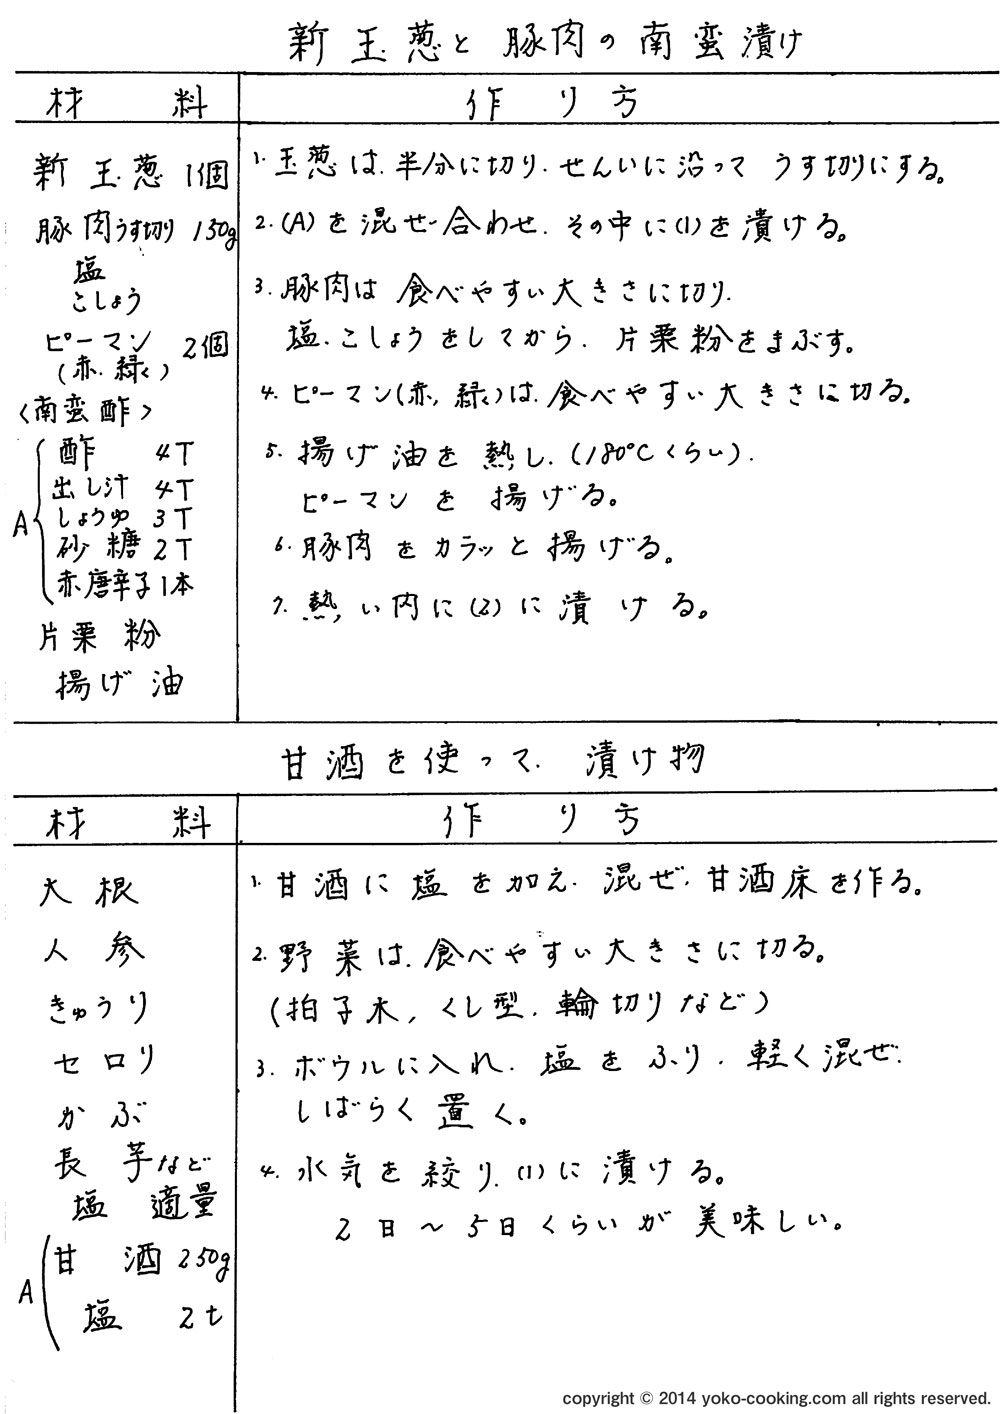 新玉葱と豚肉の南蛮漬け
材料
作り方
新玉葱 1個
豚肉うす切り 150g
塩
こしょう
ピーマン 2個
(赤.緑)
〈南蛮酢〉
A
酢 4T
出し汁 4T
しょうゆ 3T
砂糖 2T
赤唐辛子1本
片栗粉
揚げ油
1. 玉葱は.半分に切り.せんいに沿って うす切りにする。
2. (A)を混ぜ合わせ.その中に(1)を漬ける。
3. 豚肉は 食べやすい大きさに切り.
塩.こしょうをしてから.片栗粉をまぶす。
4. ピーマン(赤,緑)は.食べやすい大きさに切る。
5. 揚げ油を熱し.(180℃くらい).
ピーマンを揚げる。
6. 豚肉をカラッと揚げる。
7. 熱い肉に(2)に漬ける。
甘酒を使って.漬け物
材料
作り方
大根
人参
きゅうり
セロリ
かぶ
長芋など
塩 適量
A
甘酒 250g
塩 2t
1. 甘酒に塩を加え.混ぜ.甘酒床を作る。
2. 野菜は.食べやすい大きさに切る。
(拍子木,くし型.輪切りなど)
3. ボウルに入れ.塩をふり.軽く混ぜ.
しばらく置く。
4. 水気を絞り.(1)に漬ける。
2日～5日くらいが美味しい。
copyright © 2014 yoko-cooking.com all rights reserved.